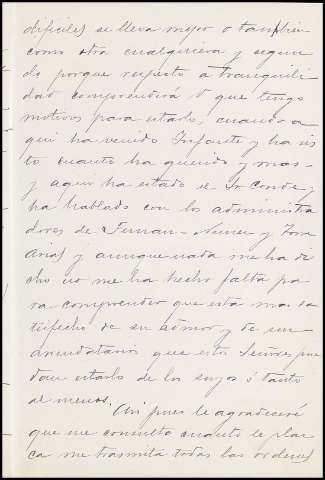 dificiles se lleva mejor o tambien
como otra cualquiera y segun
do porque respecto a tranquili
dad comprenderá V que tengo
motivos para estarlo, cuando a
qui ha venido Infante y ha vis
to cuanto ha querido y mas
y aqui ha estado el Sr Conde y
ha hablado con los administra
dores de Fernan-Nuñez y Torre
Arias y aunque nada me ha di
cho no me ha hecho falta pa
ra comprender que esta mas sa
tisfecho de su admor y de sus
arrendatarios que estos Señores pue
dan estarlo de los suyos ó tanto
al menos.
Asi pues le agradeceré
que me consulte cuanto le plaz
ca me trasmita todas las ordenes